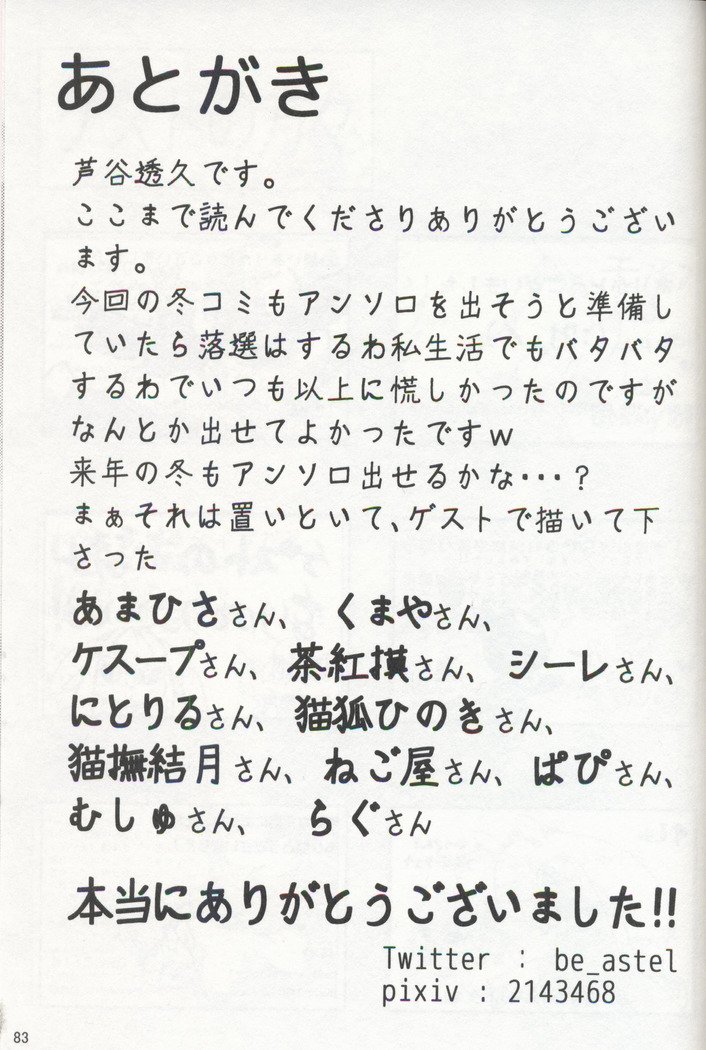 あとがき
芦谷透久です。
ここまで読んでくださりありがとうござい
ます。
今回の冬コミもアンソロを出そうと準備し
ていたら落選はするわ私生活でもバタバタ
するわでいつも以上に慌しかったのですが
なんとか出せてよかったですｗ
来年の冬もアンソロ出せるかな・・・？
まぁそれは置いといて、ゲストで描いて下
さった
あまひささん、 くまやさん、
ケスープさん、 茶紅摸さん、 シーレさん、
にとりるさん、 猫狐ひのきさん、
猫撫結月さん、 ねご屋さん、 ぱぴさん、
むしゅさん、 らぐさん
本当にありがとうございました!!
Twitter : be_astel
pixiv : 2143468
83